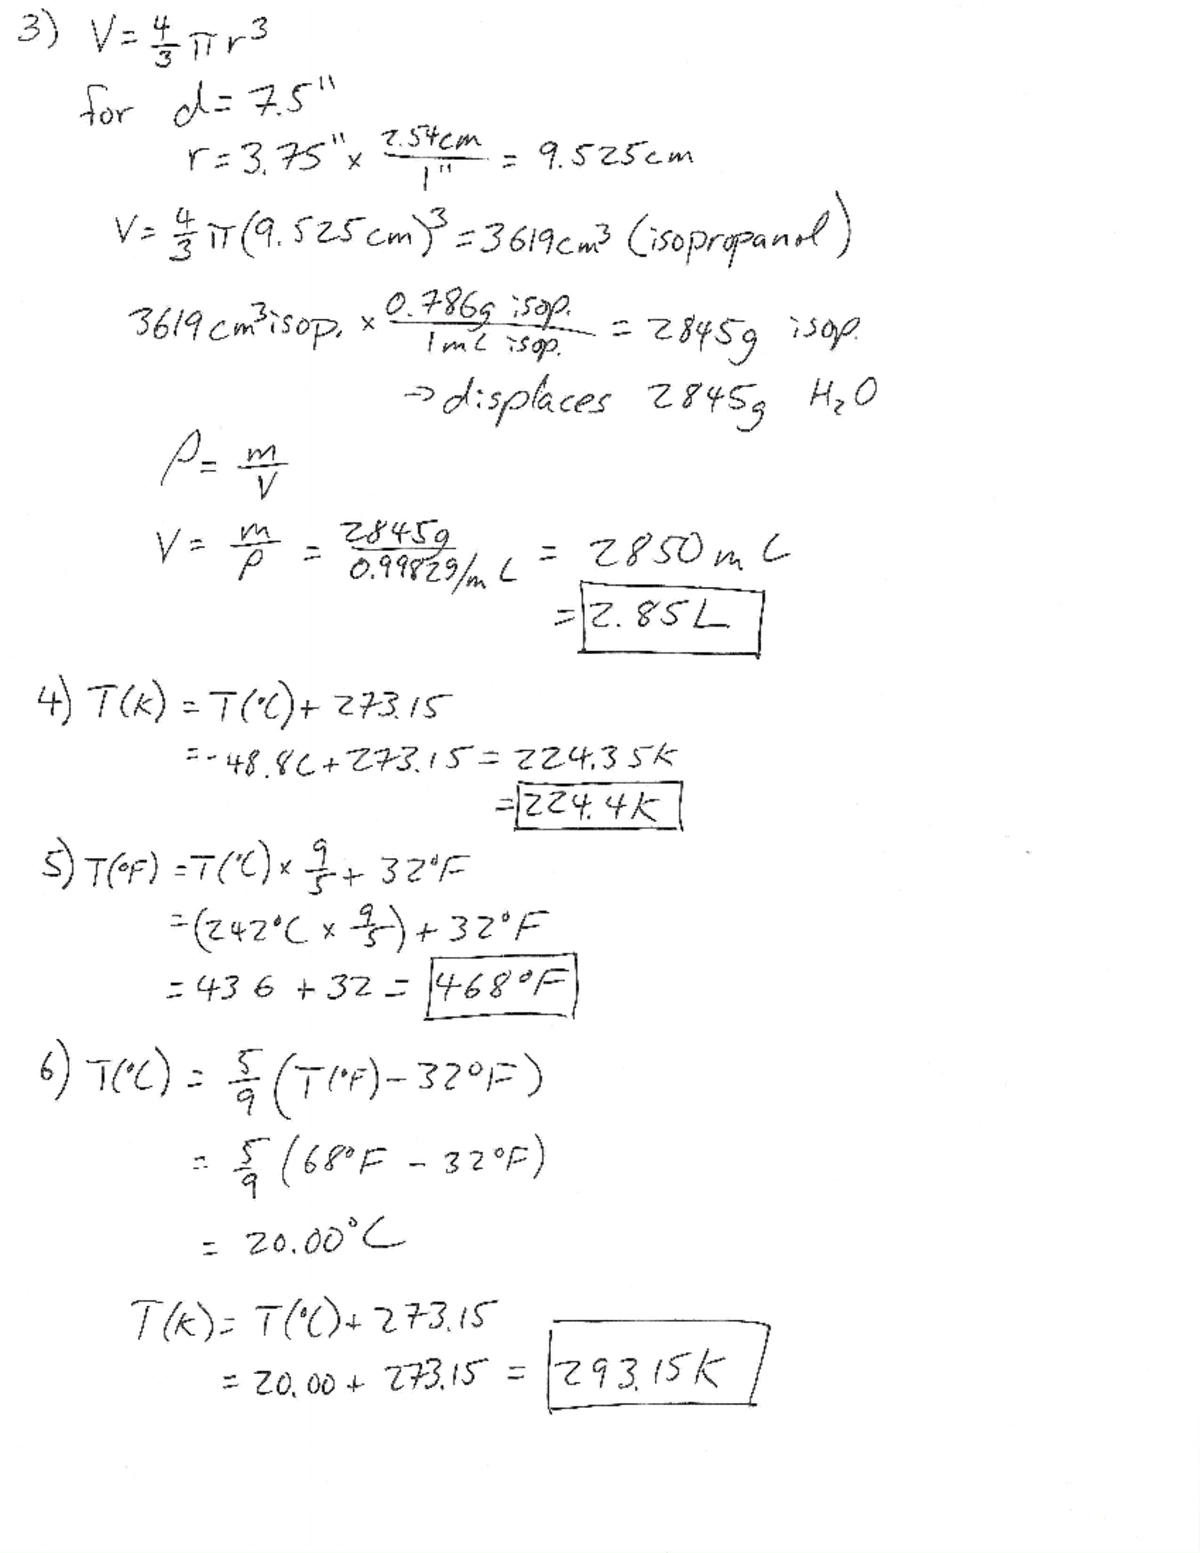 3) V = 4/3 πr³
for d = 7.5"
r = 3.75" × 2.54cm/1" = 9.525cm
V = 4/3 π(9.525cm)³ = 3619cm³ (isopropanol)
3619cm³ isop. × 0.786g isop./1mL isop. = 2845g isop.
→ displaces 2845g H₂O
ρ = m/V
V = m/ρ = 2845g/0.9982g/mL = 2850mL
= 2.85L
4) T(K) = T(°C) + 273.15
= -48.8C + 273.15 = 224.35K
= 224.4K
5) T(°F) = T(°C) × 9/5 + 32°F
= (242°C × 9/5) + 32°F
= 436 + 32 = 468°F
6) T(°C) = 5/9 (T(°F) - 32°F)
= 5/9 (68°F - 32°F)
= 20.00°C
T(K) = T(°C) + 273.15
= 20.00 + 273.15 = 293.15K